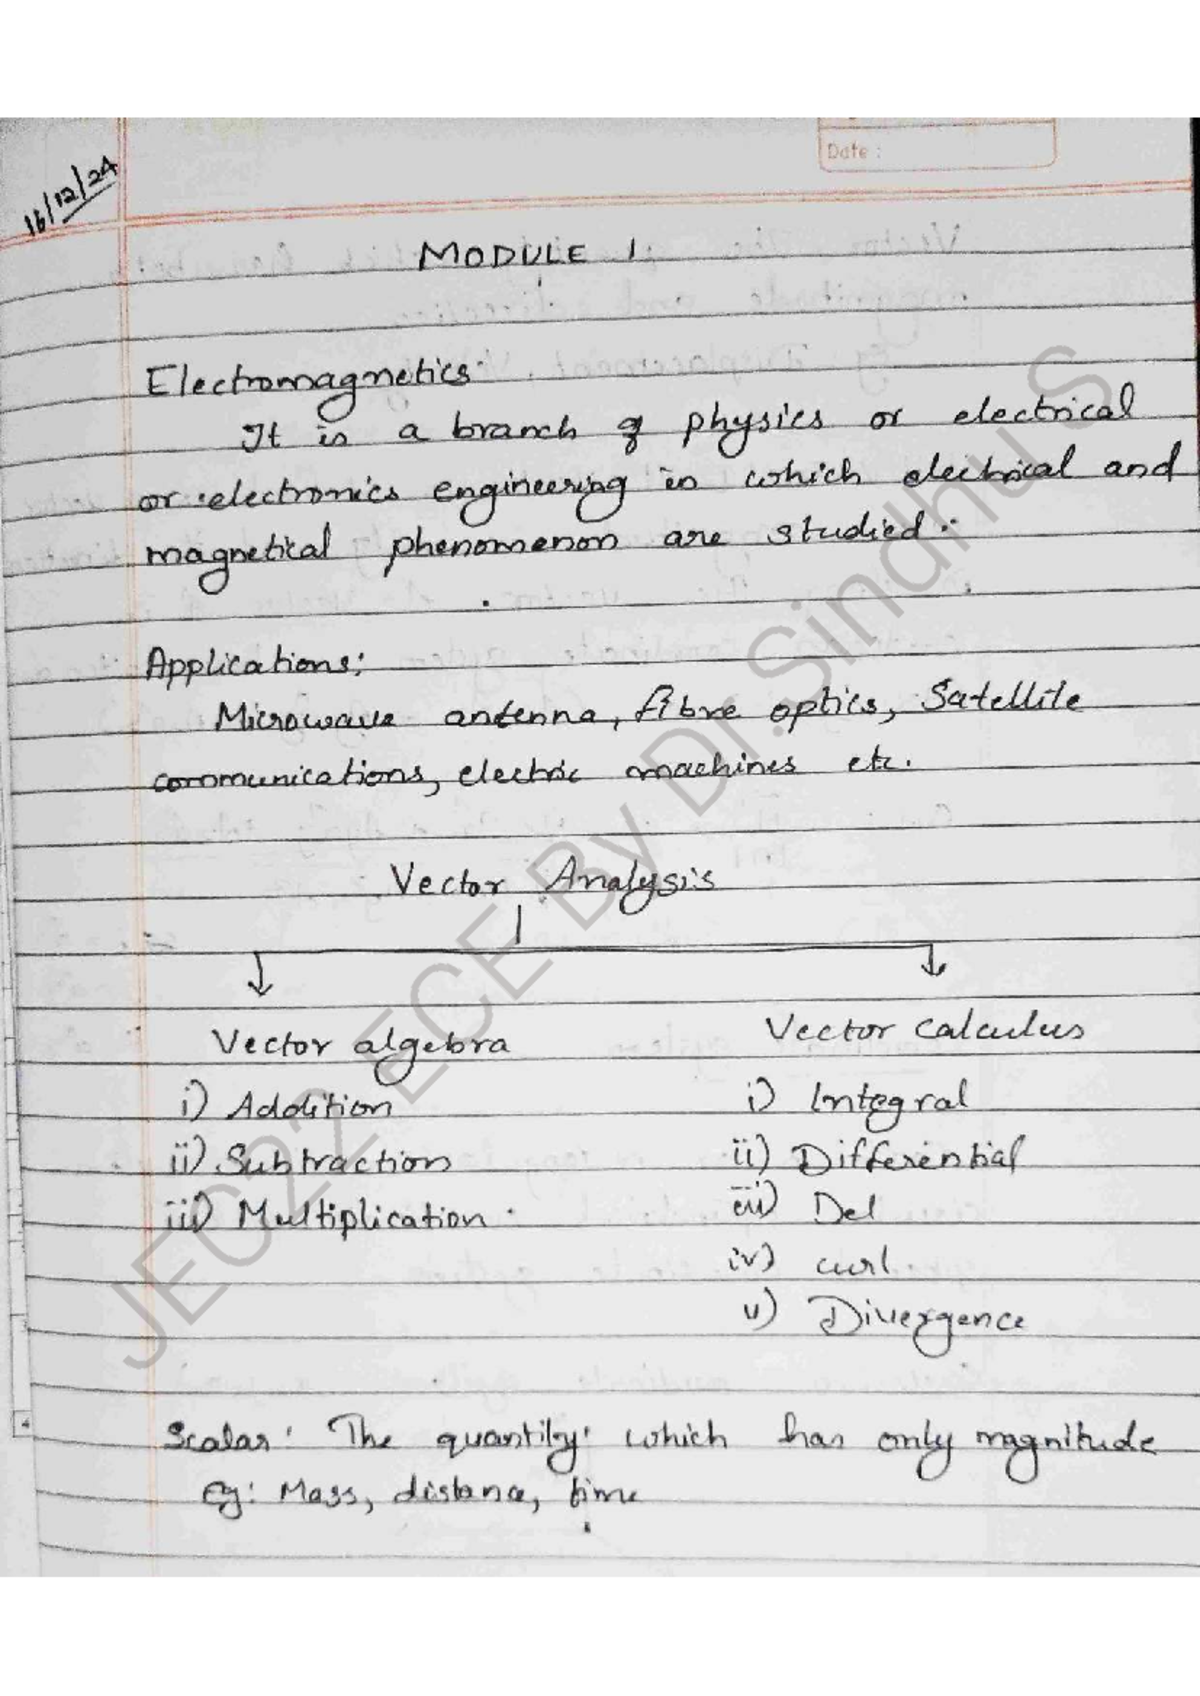 Date :
16/12/24
MODULE 1:
Electromagnetics:
It is a branch of physics or electrical
or electronics engineering in which electrical and
magnetical phenomenon are studied.
Applications:
Microwave antenna, fibre optics, Satellite
communications, electric machines etc.
Vector Analysis
Vector algebra
i) Addition
ii) Subtraction
iii) Multiplication
Vector calculus
i) Integral
ii) Differential
iii) Del
iv) curl
v) Divergence
Scalar: The quantity which has only magnitude
Eg: Mass, distance, time
JEC22 ECE By Dr.Sindhu S